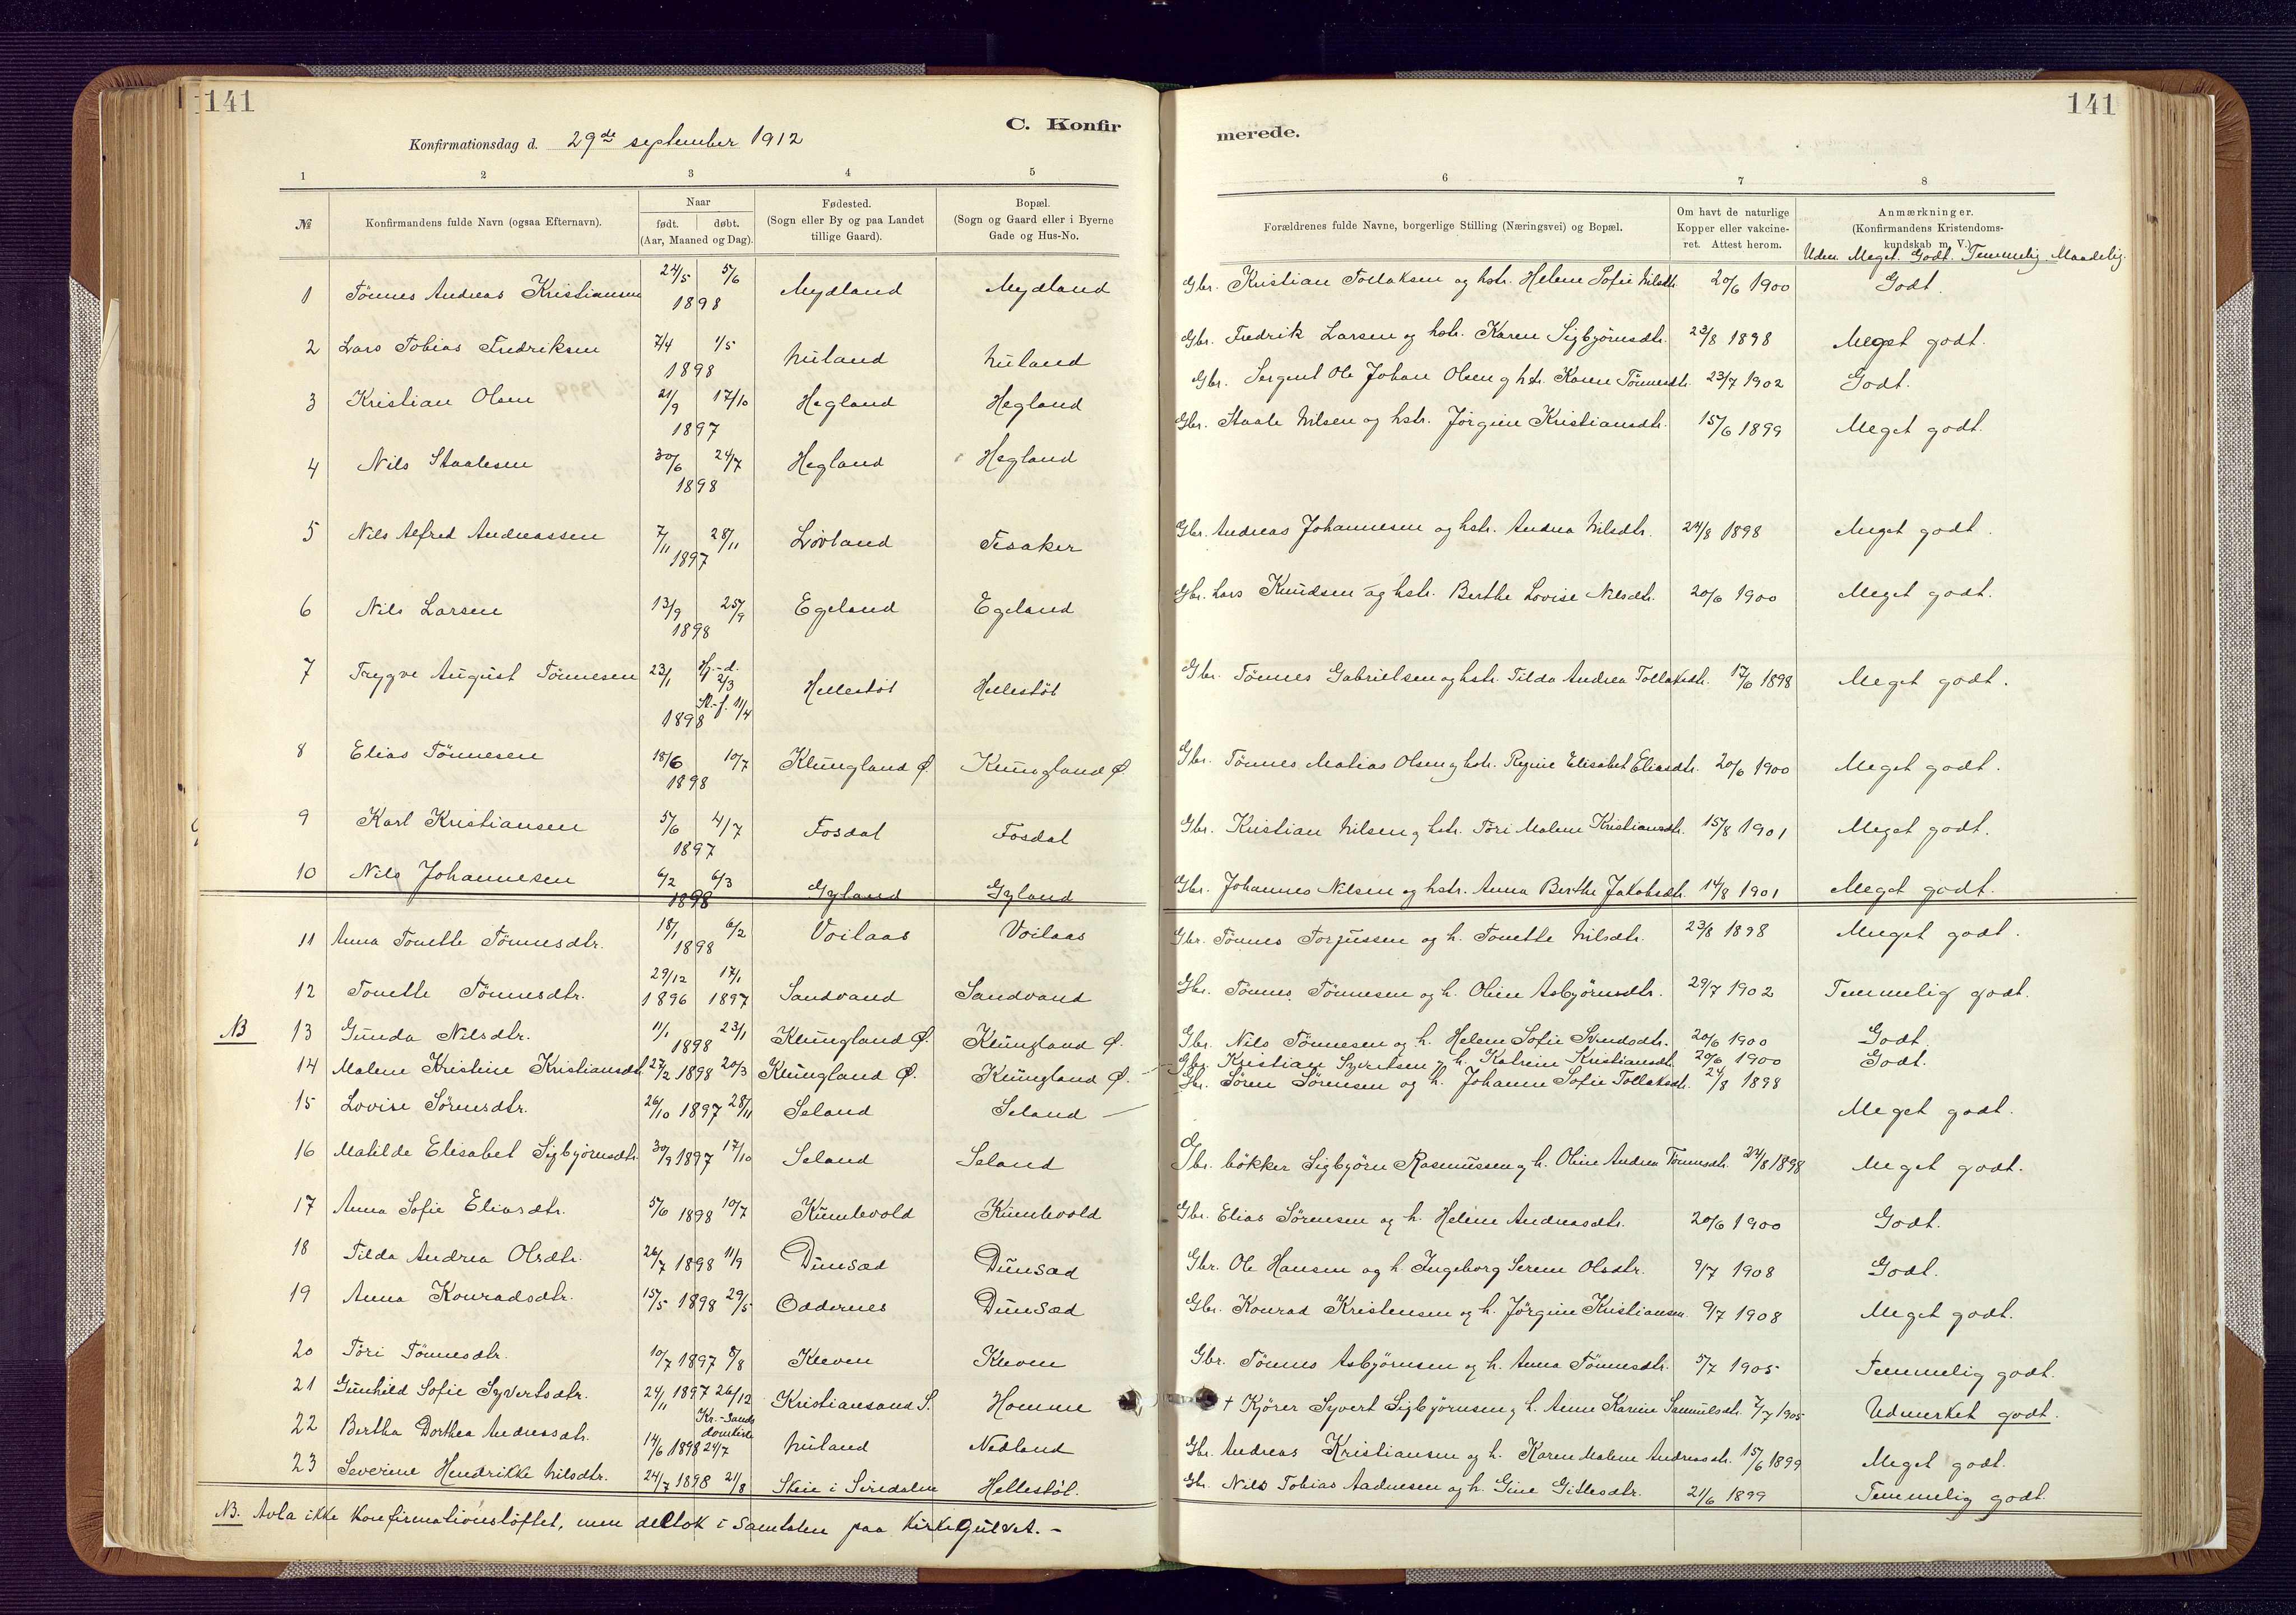 141
141
C. Konfir
merede.
Konfirmationsdag d. 29de september 1912
1 2 3 4 5 6 7 8
№
Konfirmandens fulde Navn (ogsaa Efternavn).
Naar
født. døbt.
(Aar, Maaned og Dag).
Fødested.
(Sogn eller By og paa Landet
tillige Gaard).
Bopæl.
(Sogn og Gaard eller i Byerne
Gade og Hus-No.
Forældrenes fulde Navne, borgerlige Stilling (Næringsvei) og Bopæl.
Om havt de naturlige
Kopper eller vakcine-
ret. Attest herom.
Anmærkninger.
(Konfirmandens Kristendoms-
kundskab m. V.)
Uden Meget. Godt. Temmelig. Maadelig.
1 Tönnes Andreas Kristiansen 24/5 5/6 1898 Mydland Mydland Gbr. Kristian Tollaksen og hstr. Helene Sofie Nilsdtr. 20/6 1900 Godt.
2 Lars Tobias Fredriksen 7/4 1/5 1898 Nuland Nuland Gbr. Fredrik Larsen og hstr. Karen Sigbjörnsdtr. 23/8 1898 Meget godt.
3 Kristian Olsen 21/9 17/10 1897 Hegland Hegland Gbr. Sergent Ole Johan Olsen og hstr. Karen Tönnesdtr. 23/7 1902 Godt.
4 Nils Staalesen 30/6 24/7 1898 Hegland Hegland Gbr. Staale Nilsen og hstr. Jörgine Kristiansdtr. 15/6 1899 Meget godt.
5 Nils Alfred Andreassen 7/11 28/11 1897 Lövland Fesaker Gbr. Andreas Johannesen og hstr. Andrea Nilsdtr. 24/8 1898 Meget godt.
6 Nils Larsen 13/9 25/9 1898 Egeland Egeland Gbr. Lars Knudsen og hstr. Berthe Lovise Nilsdtr. 20/6 1900 Meget godt.
7 Trygve August Tönnesen 23/1 Hj.-d. 2/3 St.-f. 11/4 1898 Hellestöl Hellestöl Gbr. Tönnes Gabrielsen og hstr. Tilda Andrea Tollaksdtr. 17/6 1898 Meget godt.
8 Elias Tönnesen 18/6 10/7 1898 Klungland Ø. Klungland Ø. Gbr. Tönnes Matias Olsen og hstr. Regine Elisabet Eliasdtr. 20/6 1900 Meget godt.
9 Karl Kristiansen 5/6 4/7 1897 Fosdal Fosdal Gbr. Kristian Nilsen og hstr. Töri Malene Kristiansdtr. 15/8 1901 Meget godt.
10 Nils Johannesen 6/2 6/3 1898 Gyland Gyland Gbr. Johannes Nilsen og hstr. Anna Berthe Jakobsdtr. 14/8 1901 Meget godt.
11 Anna Tonette Tönnesdtr. 18/1 6/2 1898 Voilaas Voilaas Gbr. Tönnes Torjussen og h. Tonette Nilsdtr. 23/8 1898 Meget godt.
12 Tonette Tönnesdtr. 29/12 1896 17/1 1897 Sandvand Sandvand Gbr. Tönnes Tönnesen og h. Oline Asbjörnsdtr. 29/7 1902 Temmelig godt.
NB 13 Gunda Nilsdtr. 11/1 23/1 1898 Klungland Ø. Klungland Ø. Gbr. Nils Tönnesen og h. Helene Sofie Svendsdtr. 20/6 1900 Godt.
14 Malene Kristine Kristiansdtr. 27/2 1898 20/3 Klungland Ø. Klungland Ø. Gbr. Kristian Syvertsen og h. Katrine Kristiansdtr. 20/6 1900 Godt.
15 Lovise Sörensdtr. 26/10 1897 28/11 Seland Seland Gbr. Sören Sörensen og h. Johanne Sofie Tollaksdtr. 24/8 1898 Meget godt.
16 Matilde Elisabet Sigbjörnsdtr. 30/9 1897 17/10 Seland Seland Gbr. bökker Sigbjörn Rasmussen og h. Oline Andrea Tönnesdtr. 24/8 1898 Meget godt.
17 Anna Sofie Eliasdtr. 5/6 1898 10/7 Kumlevold Kumlevold Gbr. Elias Sörensen og h. Helene Andreasdtr. 20/6 1900 Godt.
18 Tilda Andrea Olsdtr. 26/7 1898 11/9 Dunsæd Dunsæd Gbr. Ole Hansen og h. Ingeborg Serene Olsdtr. 9/7 1908 Godt.
19 Anna Konradsdtr. 15/5 1898 29/5 Oddernes Dunsæd Gbr. Konrad Kristensen og h. Jörgine Kristiansen 9/7 1908 Meget godt.
20 Töri Tönnesdtr. 10/7 1897 8/8 Kleven Kleven Gbr. Tönnes Asbjörnsen og h. Anna Tönnesdtr. 5/7 1905 Temmelig godt.
21 Gunhild Sofie Syvertsdtr. 24/11 1897 26/12 Kristiansand S. Homme + Kjörer Syvert Sigbjörnsen og h. Anne Karine Samuelsdtr. 7/7 1905 Udmerket godt.
22 Bertha Dorthea Andreasdtr. 14/6 1898 Kr.-sands domkirke 24/7 Nuland Nedland Gbr. Andreas Kristiansen og h. Karen Malene Andreasdtr. 15/6 1899 Meget godt.
23 Severine Hendrikke Nilsdtr. 24/7 1898 21/8 Skeie i Siredalen Hellestöl. Gbr. Nils Tobias Aadnesen og h. Gine Gitlesdtr. 21/6 1899 Temmelig godt.
NB. Avla ikke konfirmationslöftet, men deltok i samtalen paa kirkegulvet. –